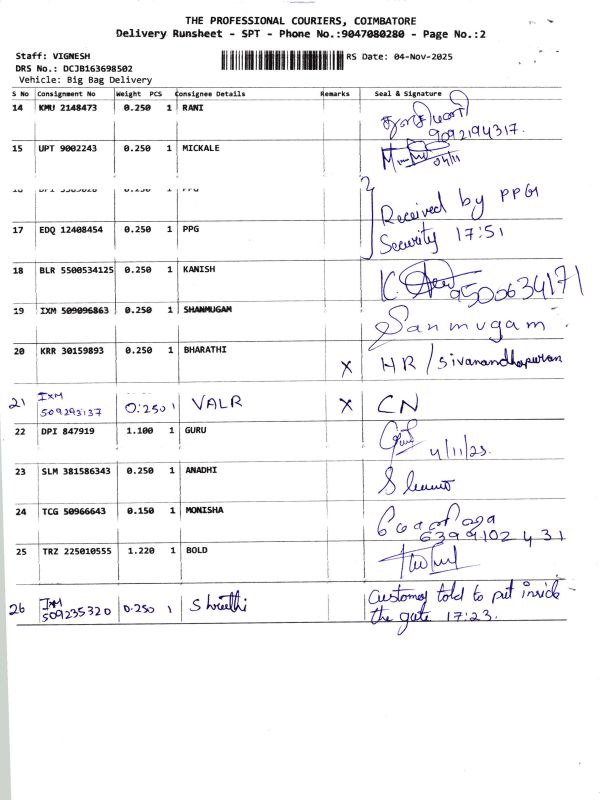 THE PROFESSIONAL COURIERS, COIMBATORE
Delivery Runsheet - SPT - Phone No.:9047080280 - Page No.:2
Staff: VIGNESH
RS Date: 04-Nov-2025
DRS No.: DCJB163698502
Vehicle: Big Bag Delivery
S No Consignment No Weight PCS Consignee Details Remarks Seal & Signature
14 KMU 2148473 0.250 1 RANI
9092194317.
15 UPT 9002243 0.250 1 MICKALE
04/11
PPG
Received by PPG
17 EDQ 12408454 0.250 1 PPG Security 17:51
18 BLR 5500534125 0.250 1 KANISH K. 9500634171
19 IXM 509096863 0.250 1 SHANMUGAM Sanmugam
20 KRR 30159893 0.250 1 BHARATHI X HR / Sivanandhapuram
21 IXM 509293137 0.250 1 VALR X CN
22 DPI 847919 1.100 1 GURU
4/11/25.
23 SLM 381586343 0.250 1 ANADHI
24 TCG 50966643 0.150 1 MONISHA
6399102431
25 TRZ 225010555 1.220 1 BOLD
26 IXM 509235320 0.250 1 Shruthi Customer told to put inside
the gate 17:23.